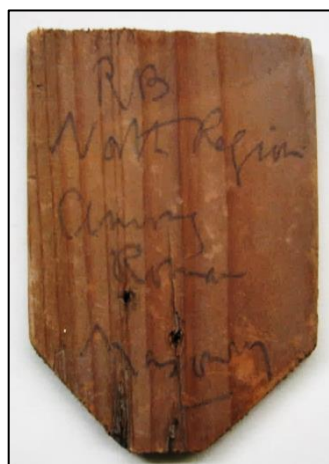 RB
North Region
Among
Roman
Masonry